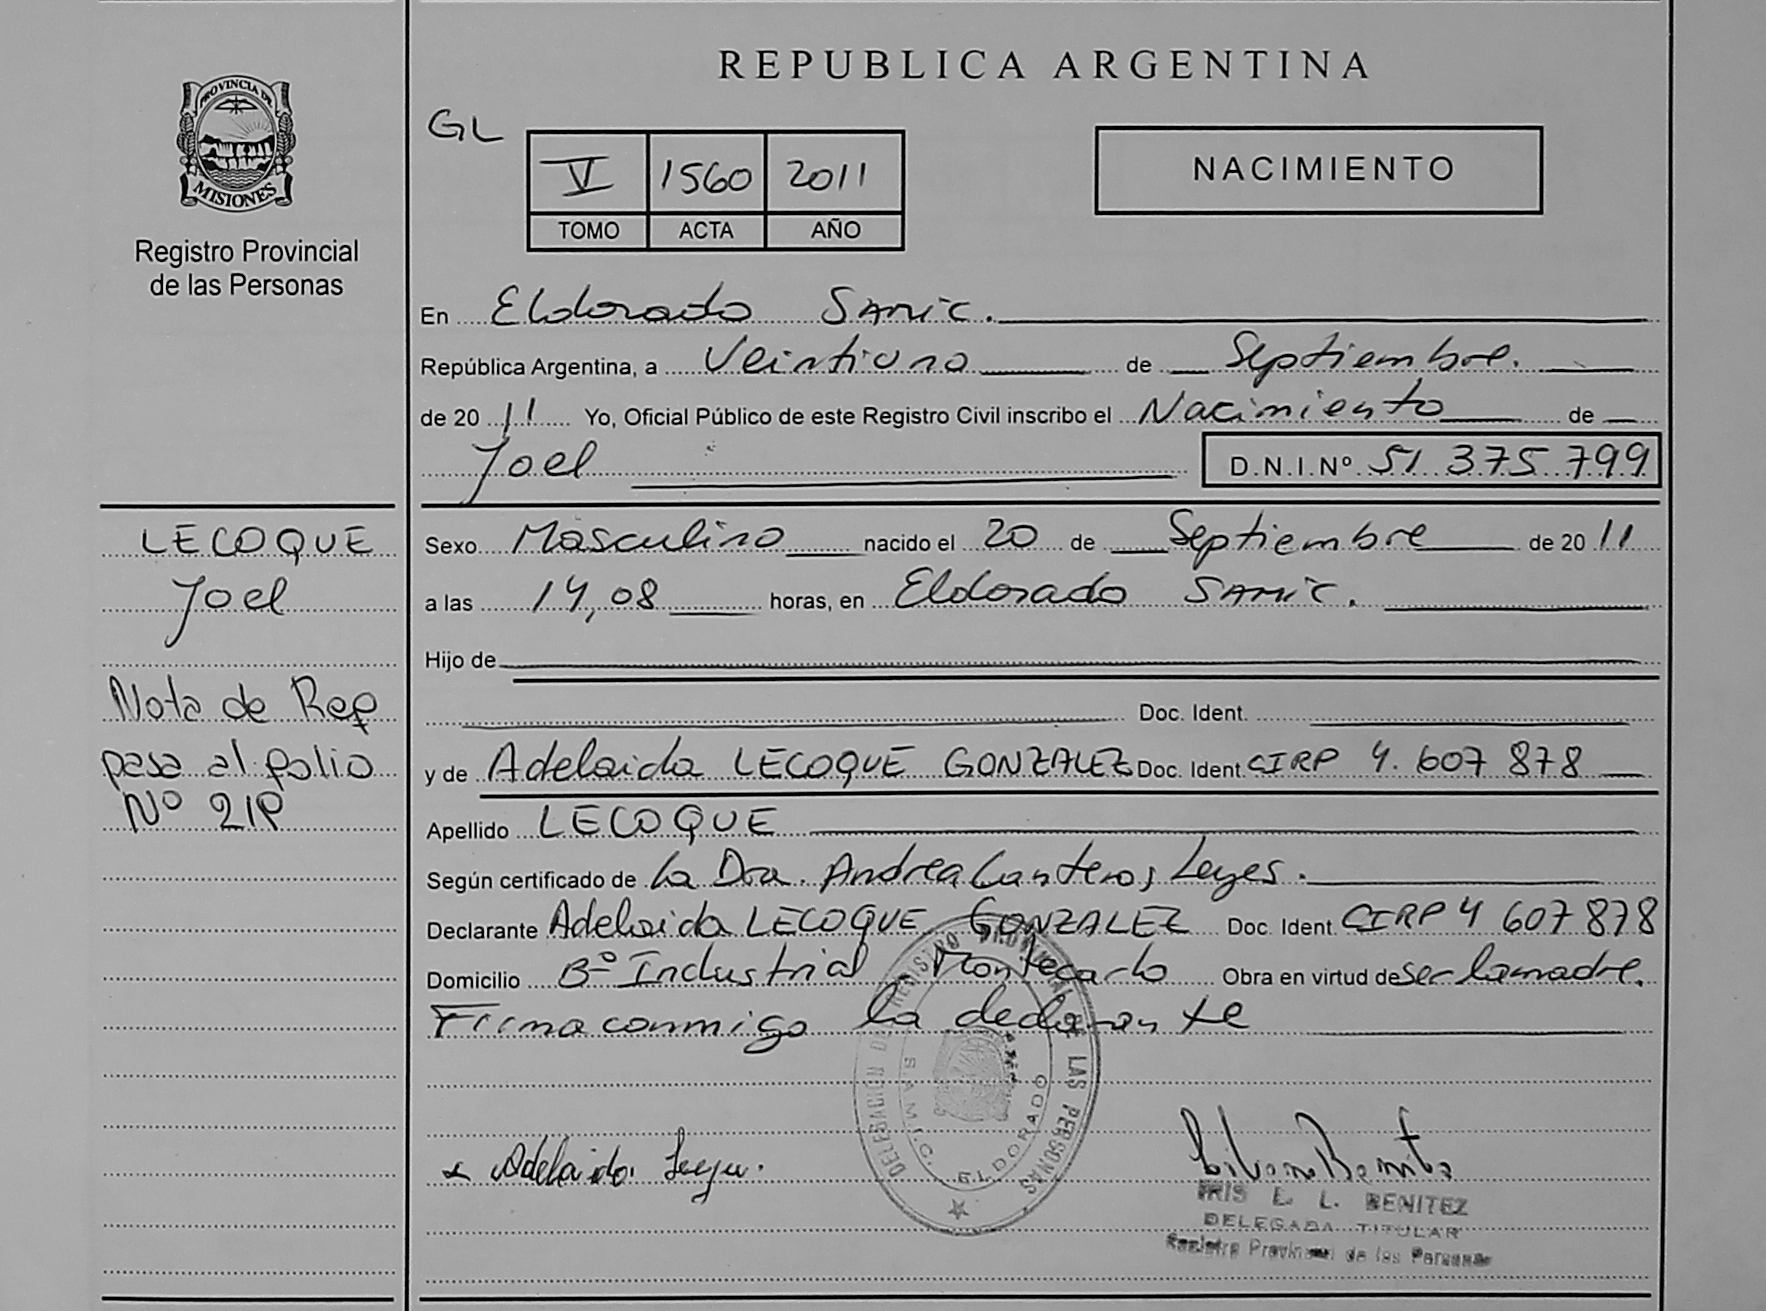 PROVINCIA DE
MISIONES
Registro Provincial
de las Personas
REPUBLICA ARGENTINA
GL
V 1560 2011
TOMO ACTA AÑO
NACIMIENTO
En Eldorado SAMIC.
República Argentina, a Veintiuno de Septiembre.
de 20 11 Yo, Oficial Público de este Registro Civil inscribo el Nacimiento de
Joel D.N.I.Nº 51 375 799
LECOQUE
Joel
Nota de Rep
pasa al folio
Nº 21P
Sexo Masculino nacido el 20 de Septiembre de 20 11
a las 14,08 horas, en Eldorado SAMIC.
Hijo de
Doc. Ident.
y de Adelaida LECOQUE GONZALEZ Doc. Ident. CIRP 4.607 878
Apellido LECOQUE
Según certificado de la Dra. Andrea Canteros Leyes.
Declarante Adelaida LECOQUE GONZALEZ Doc. Ident. CIRP 4 607 878
Domicilio Bº Industrial Montecarlo Obra en virtud de ser la madre.
Firma conmigo la declarante
DELEGACIÓN DEL REGISTRO PROVINCIAL DE LAS PERSONAS
S.A.M.I.C. ELDORADO
Adelaida
IRIS E. L. BENITEZ
DELEGADA TITULAR
Registro Provincial de las Personas